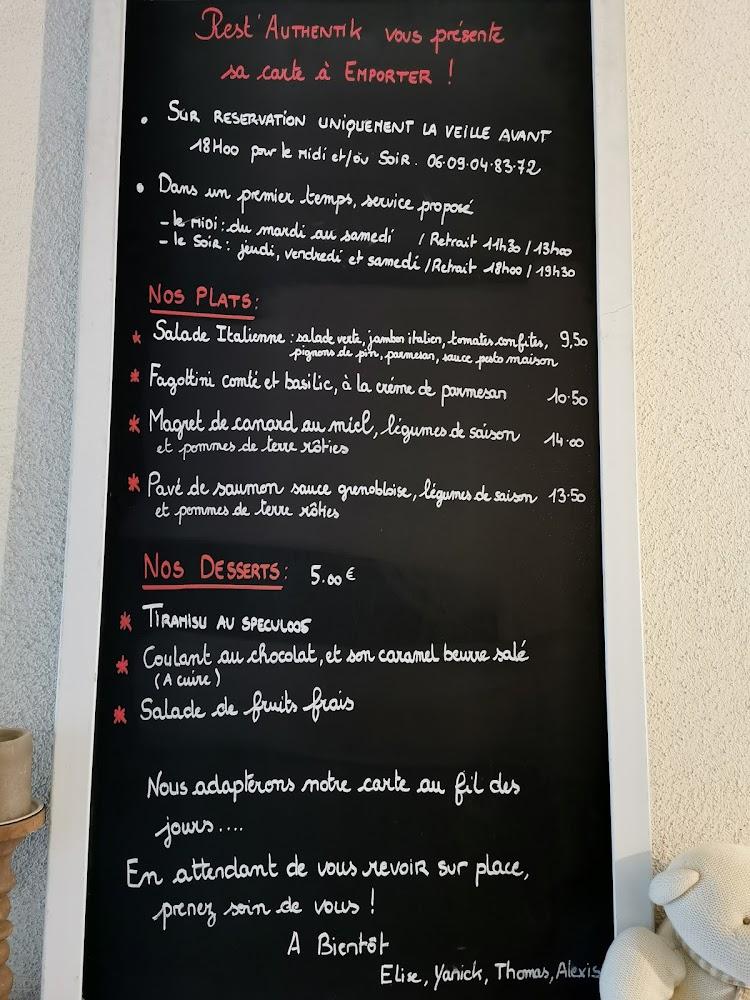 Rest'AUTHENTIK vous présente
sa carte à EMPORTER !
• SUR RESERVATION UNIQUEMENT LA VEILLE AVANT
18H00 pour le Midi et/ou SOIR. 06.09.04.83.72
• Dans un premier temps, service proposé
- le MIDI : du mardi au samedi / Retrait 11h30 / 13h00
- le SOIR : jeudi, vendredi et samedi / Retrait 18h00 / 19h30
NOS PLATS :
* Salade Italienne : salade verte, jambon italien, tomates confites, 9,50
pignons de pin, parmesan, sauce pesto maison
* Fagottini comté et basilic, à la crème de parmesan 10.50
* Magret de canard au miel, légumes de saison 14.00
et pommes de terre rôties
* Pavé de saumon sauce grenobloise, légumes de saison 13.50
et pommes de terre rôties
NOS DESSERTS : 5.00 €
* TIRAMISU AU SPECULOOS
* Coulant au chocolat, et son caramel beurre salé
(A cuire)
* Salade de fruits frais
Nous adapterons notre carte au fil des
jours....
En attendant de vous revoir sur place,
prenez soin de vous !
A Bientôt
Elise, Yanick, Thomas, Alexis